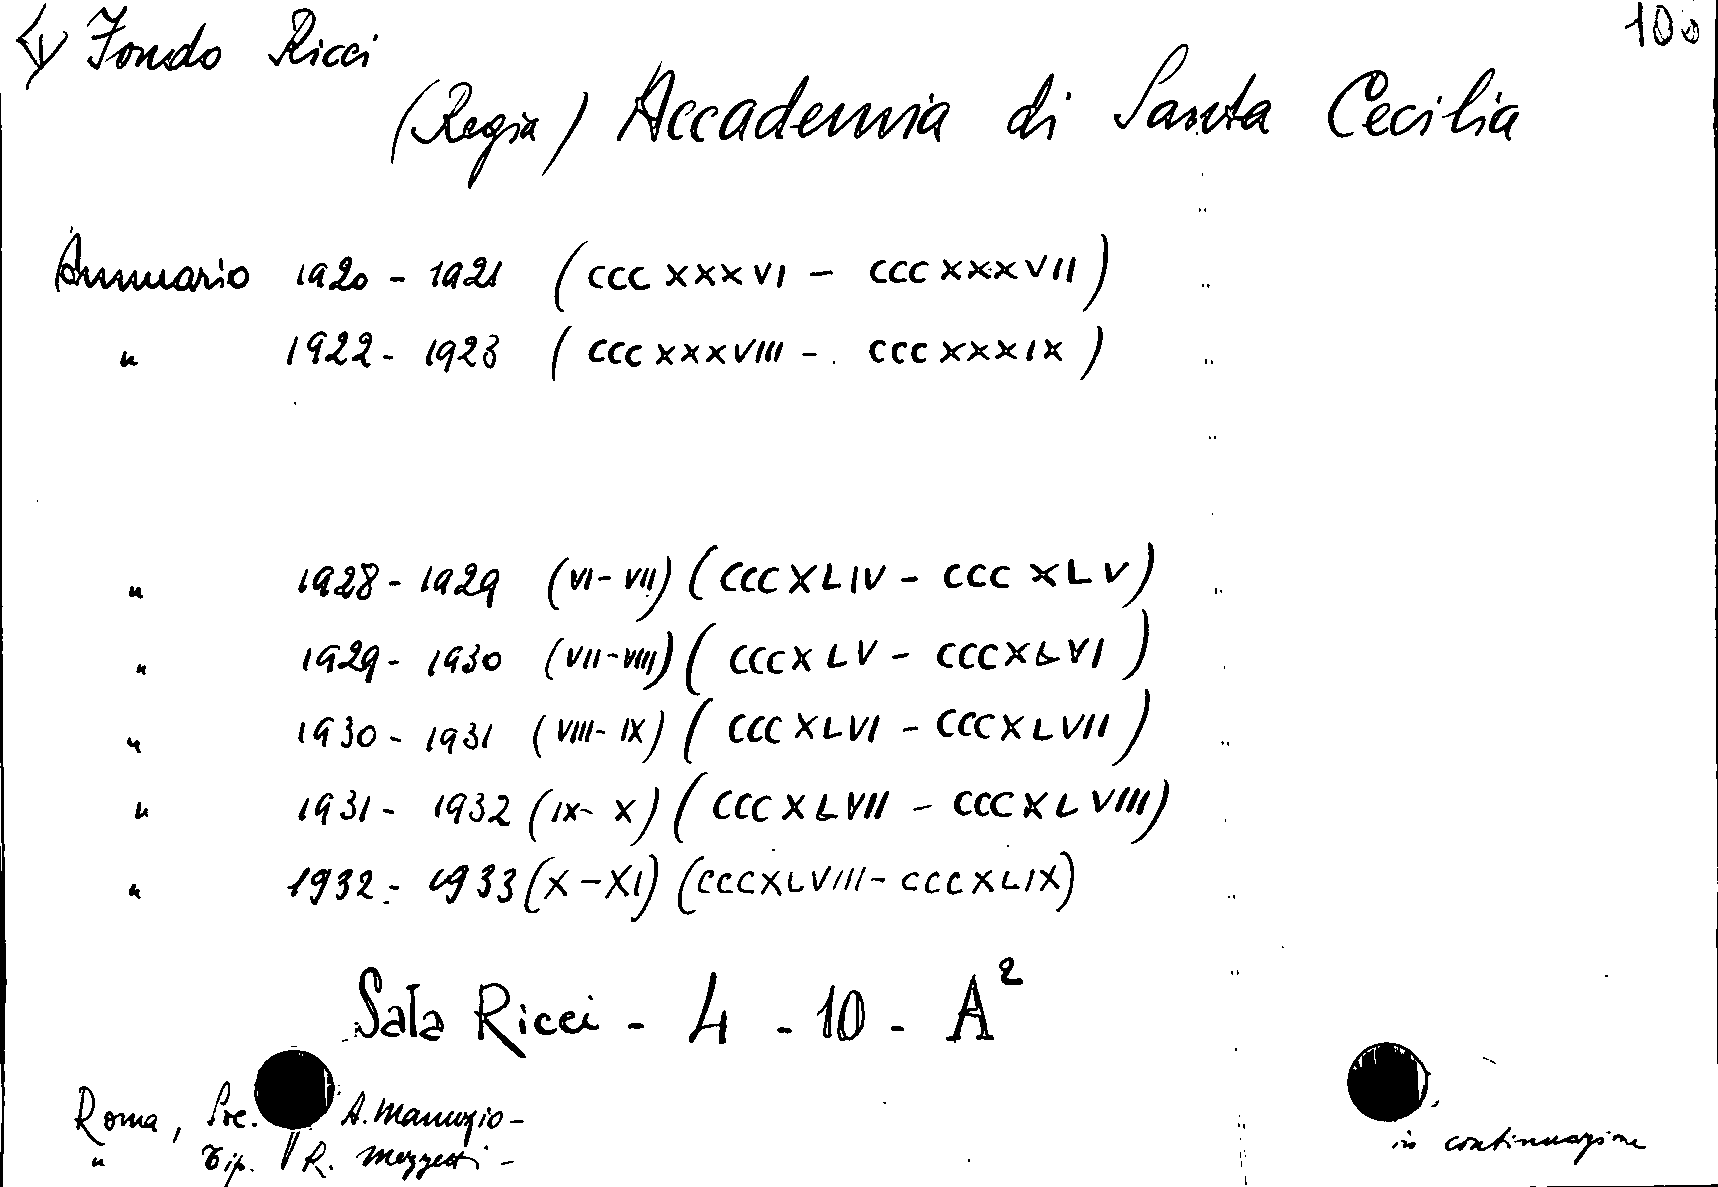 Fondo Ricci
(Regia) Accademia di Santa Cecilia
Annuario 1920 - 1921 (CCCXXXVI - CCCXXXVII)
" 1922 - 1923 (CCCXXXVIII - CCCXXXIX)
" 1928 - 1929 (VI - VII) (CCCXLIV - CCCXLV)
" 1929 - 1930 (VII - VIII) (CCCXLV - CCCXLVI)
" 1930 - 1931 (VIII - IX) (CCCXLVI - CCCXLVII)
" 1931 - 1932 (IX - X) (CCCXLVII - CCCXLVIII)
" 1932 - 1933 (X - XI) (CCCXLVIII - CCCXLIX)
Sala Ricci - 4 - 10 - A²
Roma, Soc. A. Manuzio -
" Tip. R. Mezzetti -
in continuazione